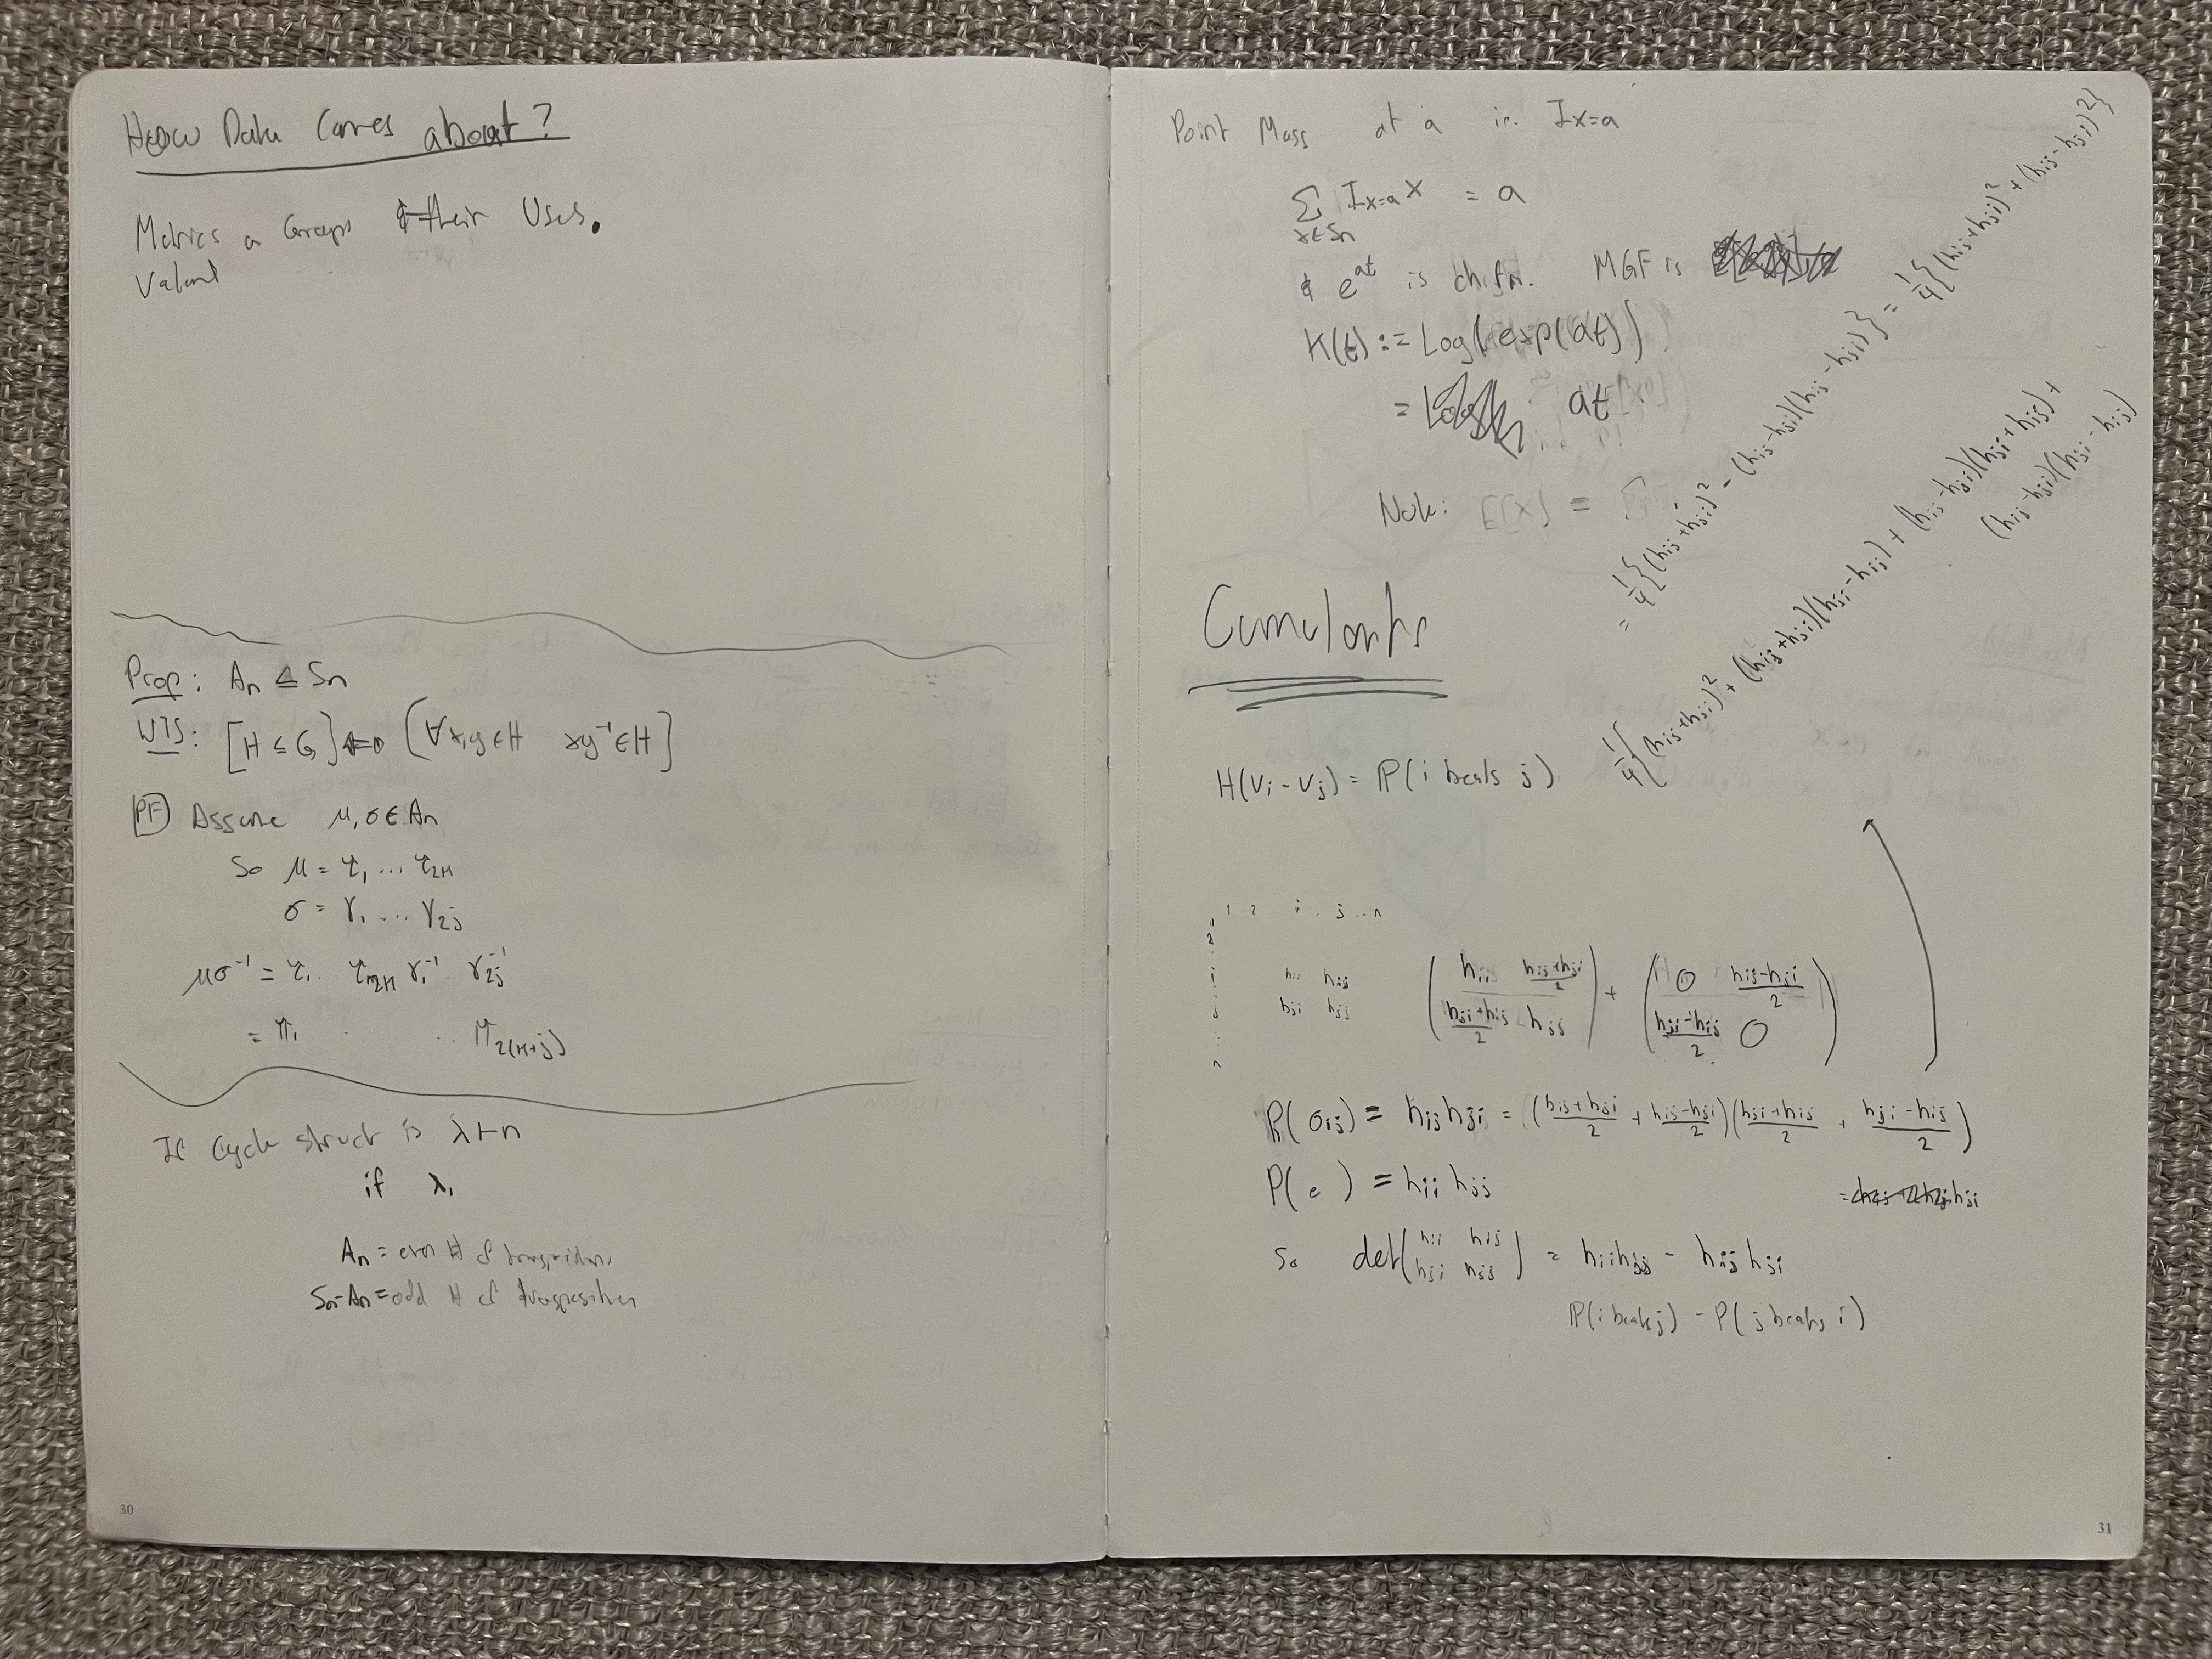 How Data Comes about?
Metrics on Groups & their Uses.
Valued
Prop: An ⊴ Sn
WTS: [H ≤ G] ⟺ (∀x,y∈H xy⁻¹∈H]
PF Assume μ,σ∈An
So μ = τ₁ ... τ₂ₖ
σ = γ₁ ... γ₂ⱼ
μσ⁻¹ = τ₁ . τ₂ₖ γ₁⁻¹ . γ₂ⱼ⁻¹
= π₁ . . . π₂₍ₖ₊ⱼ₎
If cycle struct is λ⊢n
if λ₁
An = even # of transpositions
Sn-An = odd # of transposition
30
Point Mass at a is I x=a
Σ x∈Sn I x=a x = a
& e^at is ch.fn. MGF is
K(t) := Log(exp(at))
= at
Note: E[X] =
Cumulants
= 1/4{(hij+hji)² - (hij-hji)(hij-hji)} = 1/4{(hij+hji)² + (hij-hji)²}
H(vi - vj) = P(i beats j)
1/4{(hij+hji)² + (hij+hji)(hji-hij) + (hij-hji)(hji+hij) +
(hij-hji)(hji-hij)}
1 2 ... i ... j ... n
hii hij
hji hjj
(hii (hij+hji)/2
(hji+hij)/2 hjj) + (0 (hij-hji)/2
(hji-hij)/2 0)
P(σij) = hij hji = ((hij+hji)/2 + (hij-hji)/2)((hji+hij)/2 + (hji-hij)/2)
P(e) = hii hjj
So det(hii hij
hji hjj) = hii hjj - hij hji
P(i beats j) - P(j beats i)
31